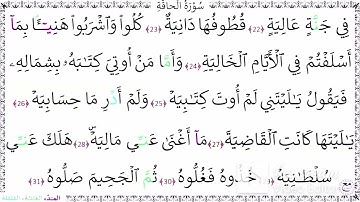 سُورَةُ الحَاقَّةِ
فِي جَنَّةٍ عَالِيَةٍ (22) قُطُوفُهَا دَانِيَةٌ (23) كُلُوا۟ وَٱشْرَبُوا۟ هَنِيٓـًٔۢا بِمَآ
أَسْلَفْتُمْ فِي ٱلْأَيَّامِ ٱلْخَالِيَةِ (24) وَأَمَّا مَنْ أُوتِيَ كِتَـٰبَهُۥ بِشِمَالِهِۦ
فَيَقُولُ يَـٰلَيْتَنِي لَمْ أُوتَ كِتَـٰبِيَهْ (25) وَلَمْ أَدْرِ مَا حِسَابِيَهْ (26)
يَـٰلَيْتَهَا كَانَتِ ٱلْقَاضِيَةَ (27) مَآ أَغْنَىٰ عَنِّي مَالِيَهْۜ (28) هَلَكَ عَنِّي
سُلْطَـٰنِيَهْ خُذُوهُ فَغُلُّوهُ (30) ثُمَّ ٱلْجَحِيمَ صَلُّوهُ (31)